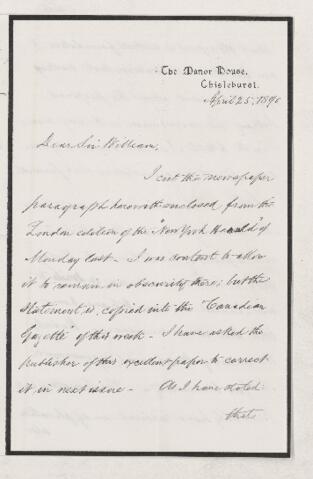 The Manor House,
Chislehurst.
April 25, 1890
Dear Sir William,
I cut the newspaper
paragraph herewith enclosed from the
London edition of the "New York Herald" of
Monday last - I was content to allow
it to remain in obscurity there; but the
statement is copied into the "Canadian
Gazette" of this week - I have asked the
publisher of this excellent paper to correct
it in next issue - As I have stated:
that